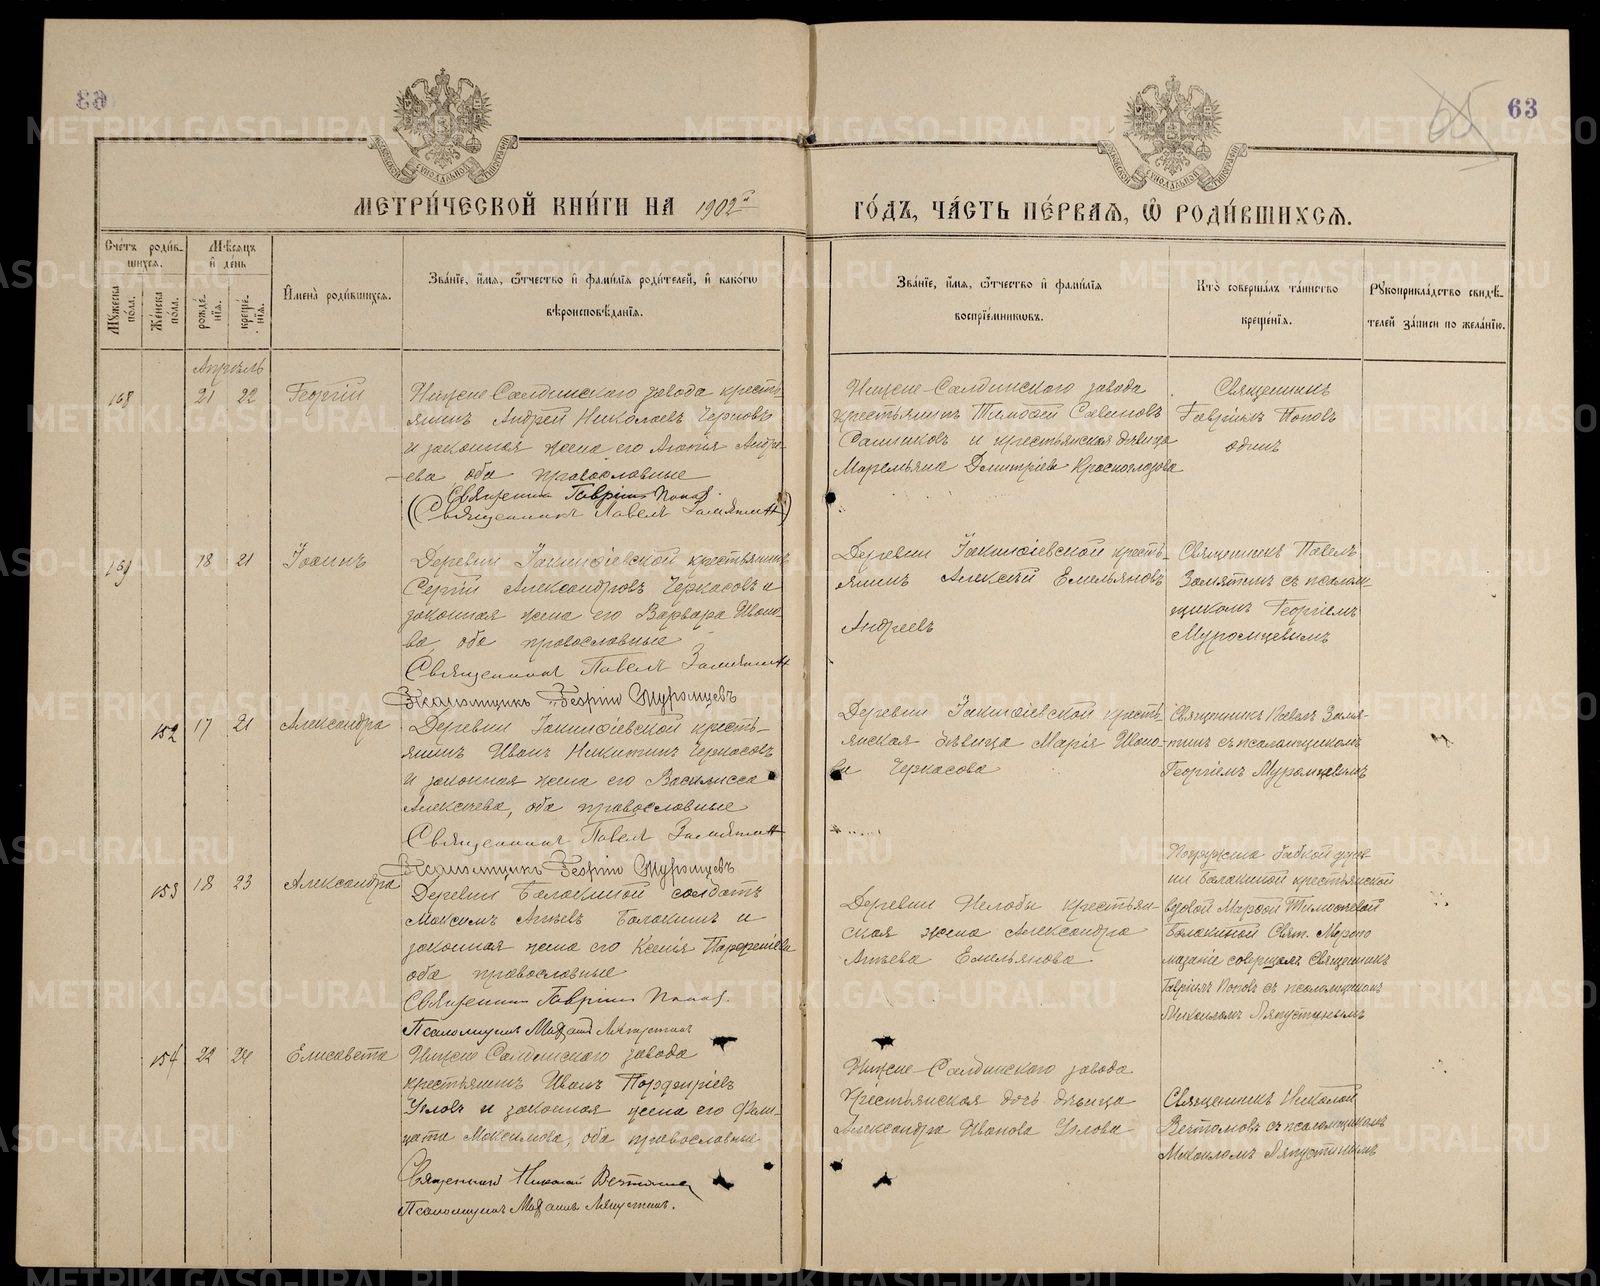 63
МЕТРИ́ЧЕСКОЙ КНИ́ГИ НА 1902й
ГО́ДЪ, ЧА́СТЬ ПЕ́РВАѦ, Ѽ РОДИ́ВШИХСѦ.
Сче́тъ роди́в-
шихсѧ.
Мꙋжеска по́ла.
Же́нска по́ла.
Мѣ́сѧцъ
и҆ де́нь
рожде́-
нїѧ.
креще́-
нїѧ.
И҆мена̀ роди́вшихсѧ.
Зва́нїе, и҆́мѧ, ѻ҆́тчество и҆ фами́лїѧ роди́телей, и҆ како́гѡ
вѣроисповѣ́данїѧ.
Зва́нїе, и҆́мѧ, ѻ҆́тчество и҆ фами́лїѧ
воспрїе́мникѡвъ.
Кто̀ соверша́лъ та́инство
креще́нїѧ.
Рꙋкоприкла́дство свидѣ́-
телей за́писи по жела́нїю.
Апрѣль
168
21 22
Георгій
Нижне-Салдинскаго завода кресть-
янинъ Андрей Николаевъ Черновъ
и законная жена его Агапія Андре-
ева оба православные
Священникъ Гавріилъ Поповъ
(Священникъ Павелъ Замятинъ)
Нижне-Салдинскаго завода
крестьянинъ Тимофей Савиновъ
Санниковъ и крестьянская дѣвица
Маремьяна Димитріева Красноглазова
Священникъ
Гавріилъ Поповъ
одинъ
169
18 21
Іоаннъ
Деревни Іакинфіевской крестьянинъ
Сергій Александровъ Черкасовъ и
законная жена его Варвара Ивано-
ва, оба православные
Священникъ Павелъ Замятинъ
Псаломщикъ Георгій Муромцевъ
Деревни Іакинфіевской кресть-
янинъ Алексѣй Емельяновъ
Андреевъ
Священникъ Павелъ
Замятинъ съ псалом-
щикомъ Георгіемъ
Муромцевымъ
152
17 21
Александра
Деревни Іакинфіевской кресть-
янинъ Иванъ Никитинъ Черкасовъ
и законная жена его Василисса
Алексѣева, оба православные
Священникъ Павелъ Замятинъ
Псаломщикъ Георгій Муромцевъ
Деревни Іакинфіевской кресть-
янская дѣвица Марія Ивано-
ва Черкасова
Священникъ Павелъ Замя-
тинъ съ псаломщикомъ
Георгіемъ Муромцевымъ
153
18 23
Александра
Деревни Балакиной солдатъ
Максимъ Агѣевъ Балакинъ и
законная жена его Ксенія Парфеніева
оба православные
Священникъ Гавріилъ Поповъ.
Псаломщикъ Михаилъ Ляпустинъ
Деревни Нелобы крестьян-
ская жена Александра
Агѣева Емельянова
Погружена бабкой дерев-
ни Балакиной крестьянской
вдовой Марфой Тимофеевой
Балакиной Свят. Миропо-
мазаніе совершалъ Священникъ
Гавріилъ Поповъ съ псаломщикомъ
Михаиломъ Ляпустинымъ
154
22 24
Елисавета
Нижне-Салдинскаго завода
крестьянинъ Иванъ Порфиріевъ
Угловъ и законная жена его Фели-
цата Максимова, оба православные
Священникъ Николай Ветошевъ
Псаломщикъ Михаилъ Ляпустинъ.
Нижне-Салдинскаго завода
Крестьянская дочь дѣвица
Александра Иванова Углова
Священникъ Николай
съ псаломщикомъ
Михаиломъ Ляпустинымъ
METRIKI.GASO-URAL.RU